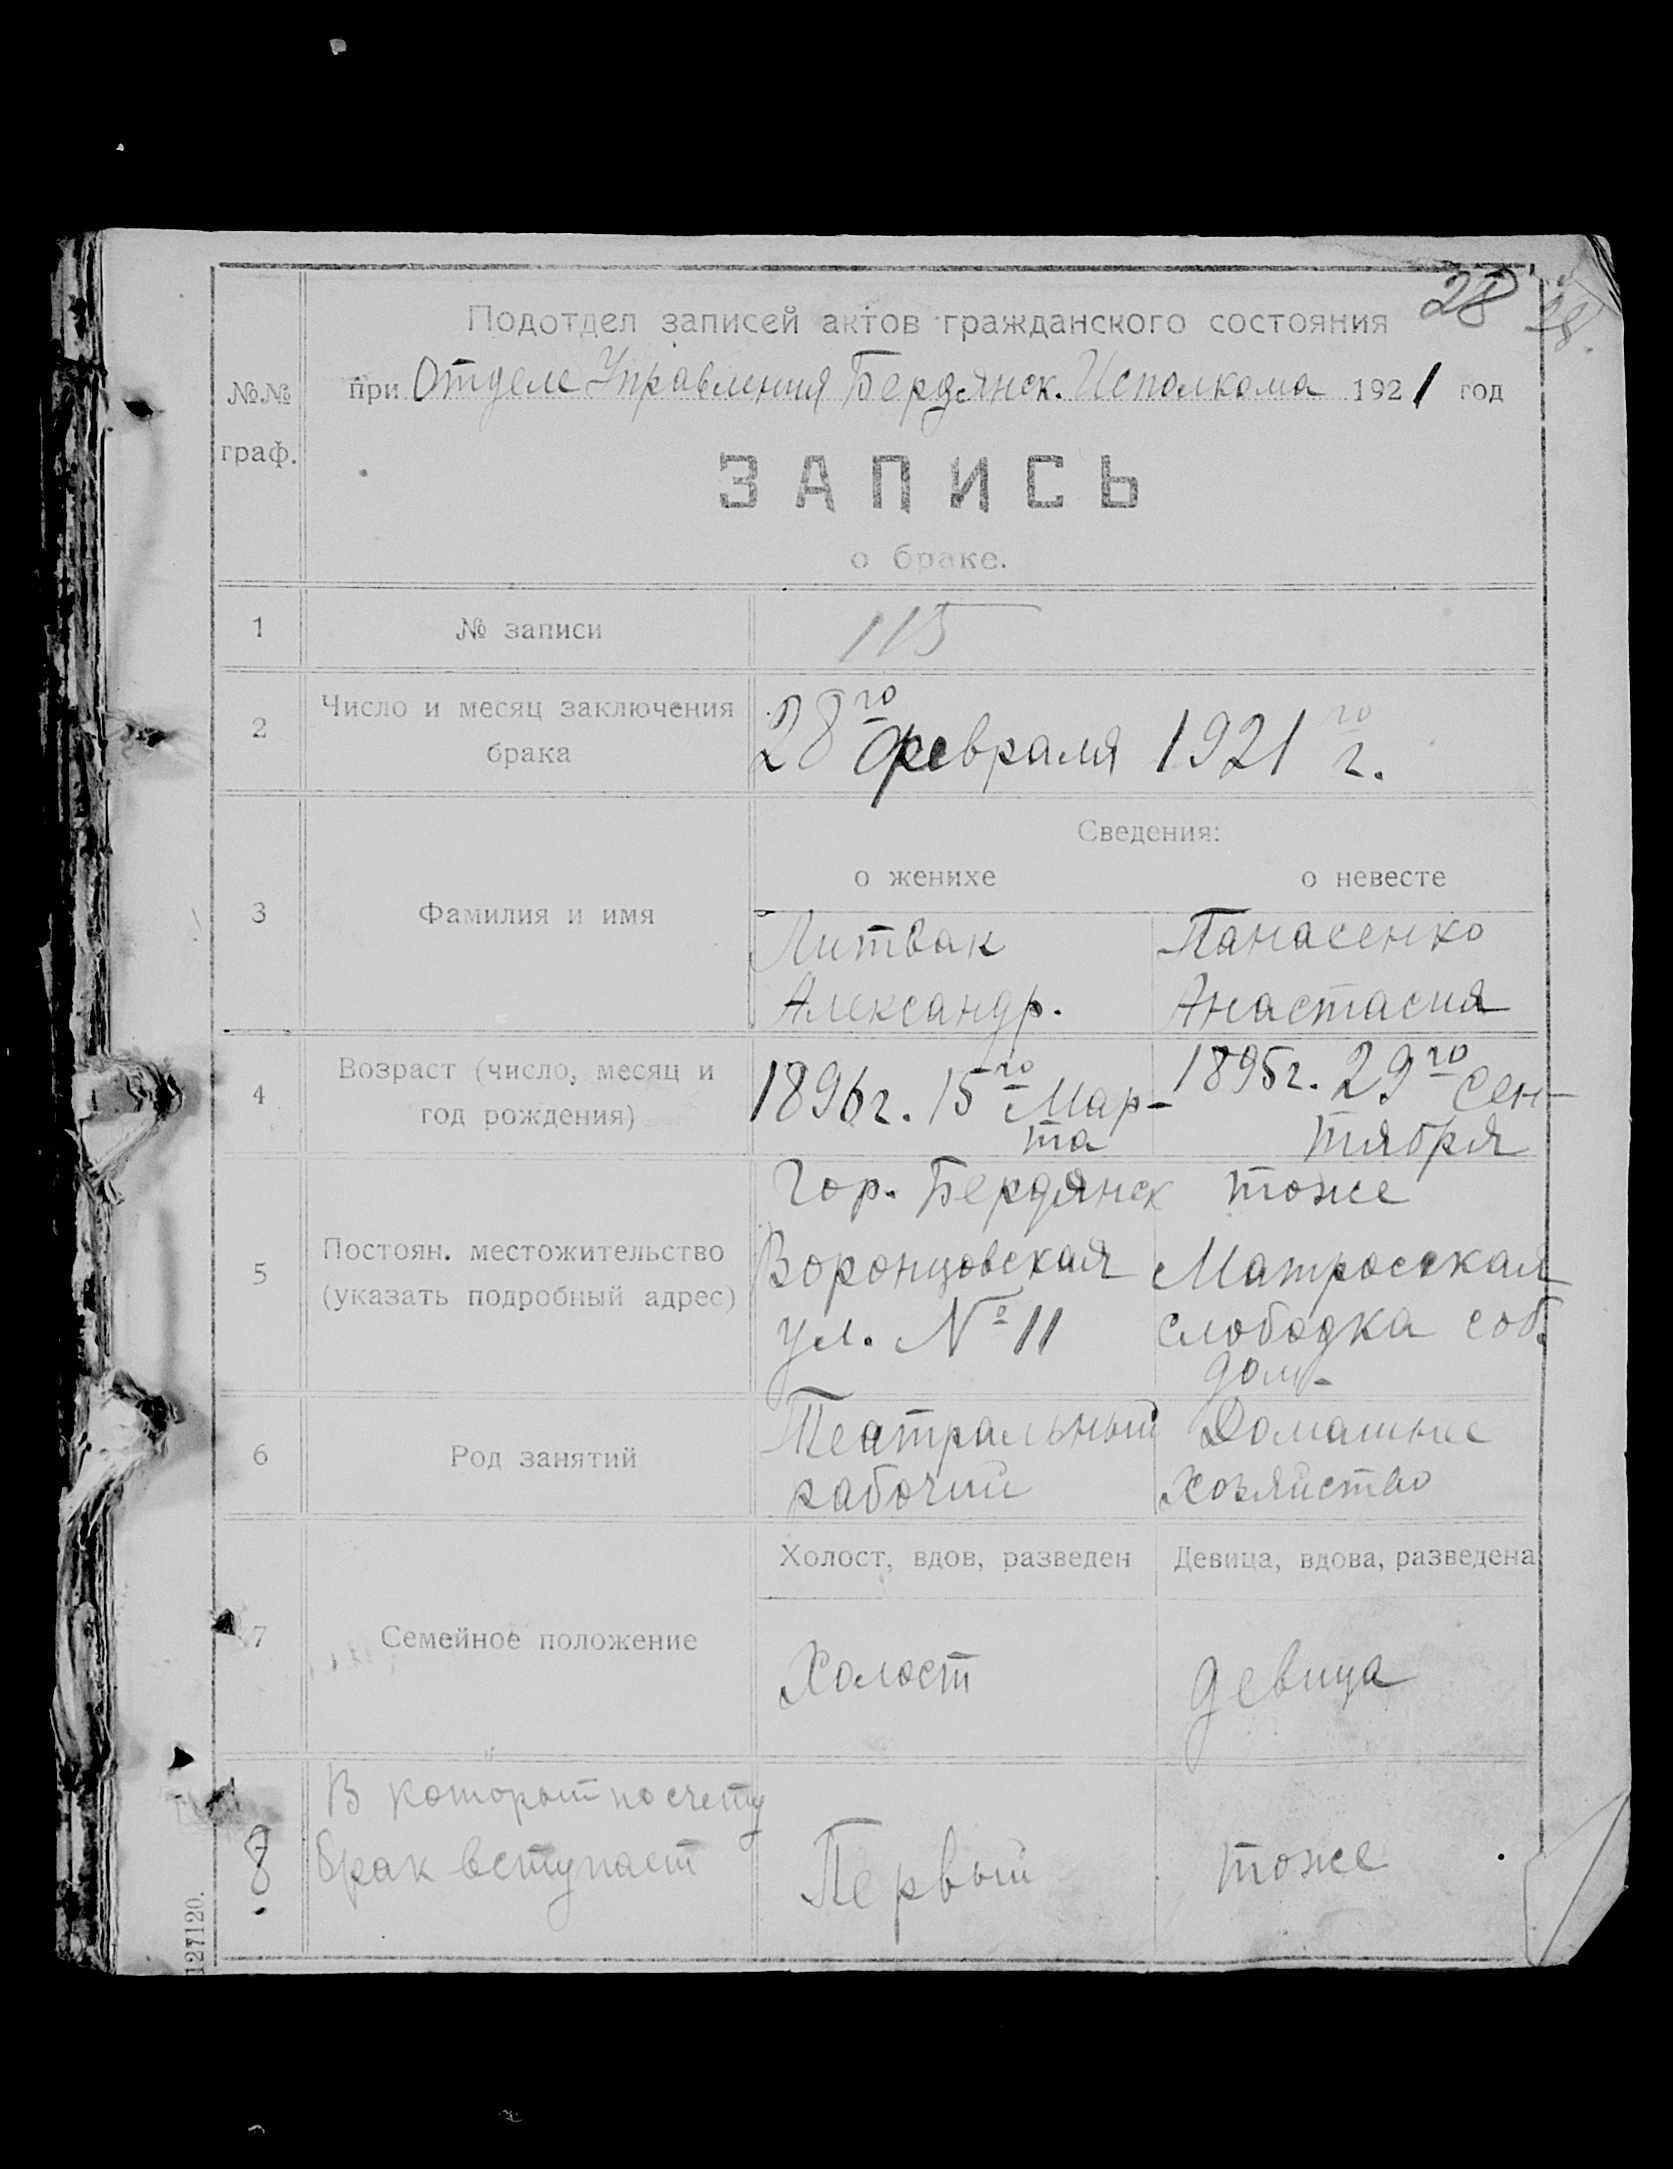 28 28.
Подотдел записей актов гражданского состояния
№№ при Отделе Управления Бердянск. Исполкома 1921 год
граф.
ЗАПИСЬ
о браке.
1 № записи 115
2 Число и месяц заключения брака 28го февраля 1921го г.
Сведения:
о женихе о невесте
3 Фамилия и имя
Литвак Панасенко
Александр. Анастасия
4 Возраст (число, месяц и год рождения)
1896г. 15го Мар- 1895г. 29го Сен-
та тября
5 Постоян. местожительство
(указать подробный адрес)
Гор. Бердянск тоже
Воронцовская Матросская
ул. № 11 слободка соб.
дом.
6 Род занятий
Театральный Домашнее
рабочий хозяйство
Холост, вдов, разведен Девица, вдова, разведена
7 Семейное положение
Холост девица
8 В который по счету
брак вступает
Первый тоже
127120.